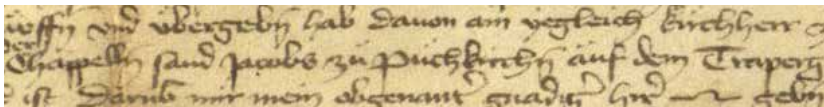 vnd übergebn hab dauon ain yegleich kirchherr
Chappelln sand Jacobs zu Puchkirchn auf dem Traperg
ist darumb mir mein obgenant gnadig her gebn